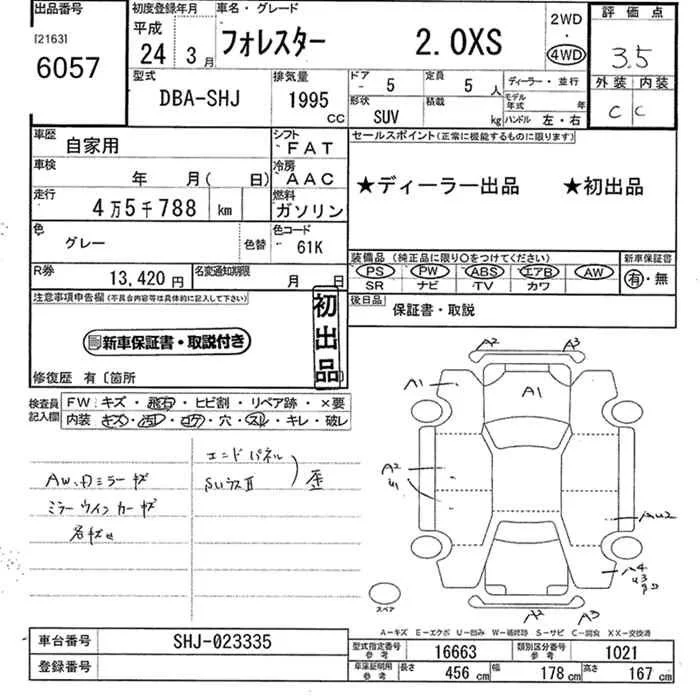 出品番号
[2163]
6057
初度登録年月
平成
24 3月
車名・グレード
フォレスター 2.0XS
2WD
・
4WD
評価点
3.5
外装 内装
C C
型式
DBA-SHJ
排気量
1995 CC
ドア
5
定員
5 人
形状
SUV
積載
kg
ディーラー・並行
モデル年式 年
ハンドル 左・右
車歴
自家用
シフト
FAT
車検
年 月( 日)
冷房
AAC
走行
4万5千788 km
燃料
ガソリン
色
グレー
色替
色コード
61K
R券
13,420円
名変通知期限
月 日
セールスポイント(正常に機能するものに限ります)
★ディーラー出品 ★初出品
装備品(純正品に限り○をつけてください)
PS PW ABS エアB AW
SR ナビ TV カワ
新車保証書
有・無
後日品
保証書・取説
注意事項申告欄(不具合内容等は具体的に記入して下さい)
新車保証書・取説付き
初出品
修復歴 有〔箇所 〕
検査員記入欄
FW:キズ・飛石・ヒビ割・リペア跡・×要
内装:キズ・汚レ・コゲ・穴・スレ・キレ・破レ
エンドパネル
歪
A2 A3
A1
A1
A2
AU2
A4
A2 A3
スペア
A−キズ E−エクボ U−凹み W−補修跡 S−サビ C−腐食 XX−交換済
車台番号
SHJ-023335
登録番号
型式指定番号 参考
16663
類別区分番号 参考
1021
車庫証明用 参考
長さ 456 cm
幅 178 cm
高さ 167 cm